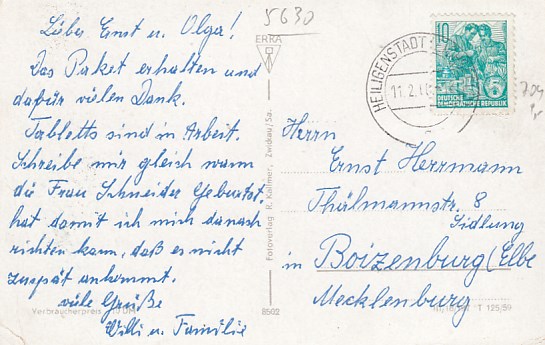 5630
Lieber Ernst u. Olga!
Das Paket erhalten und
dafür vielen Dank.
Tabletts sind in Arbeit.
Schreibe mir gleich wann
die Frau Schneider Geburtst.
hat damit ich mich danach
richten kann, daß es nicht
zuspät ankommt.
viele Grüße
Willi u. Familie
Verbraucherpreis
ERKA
Fotoverlag R. Kallmer, Zwickau/Sa.
8502
HEILIGENSTADT
11.2.
10
5
DEUTSCHE
DEMOKRATISCHE REPUBLIK
Herrn
Ernst Herrmann
Thälmannstr. 8
Sidlung
in Boizenburg/Elbe
Mecklenburg
T 125/59